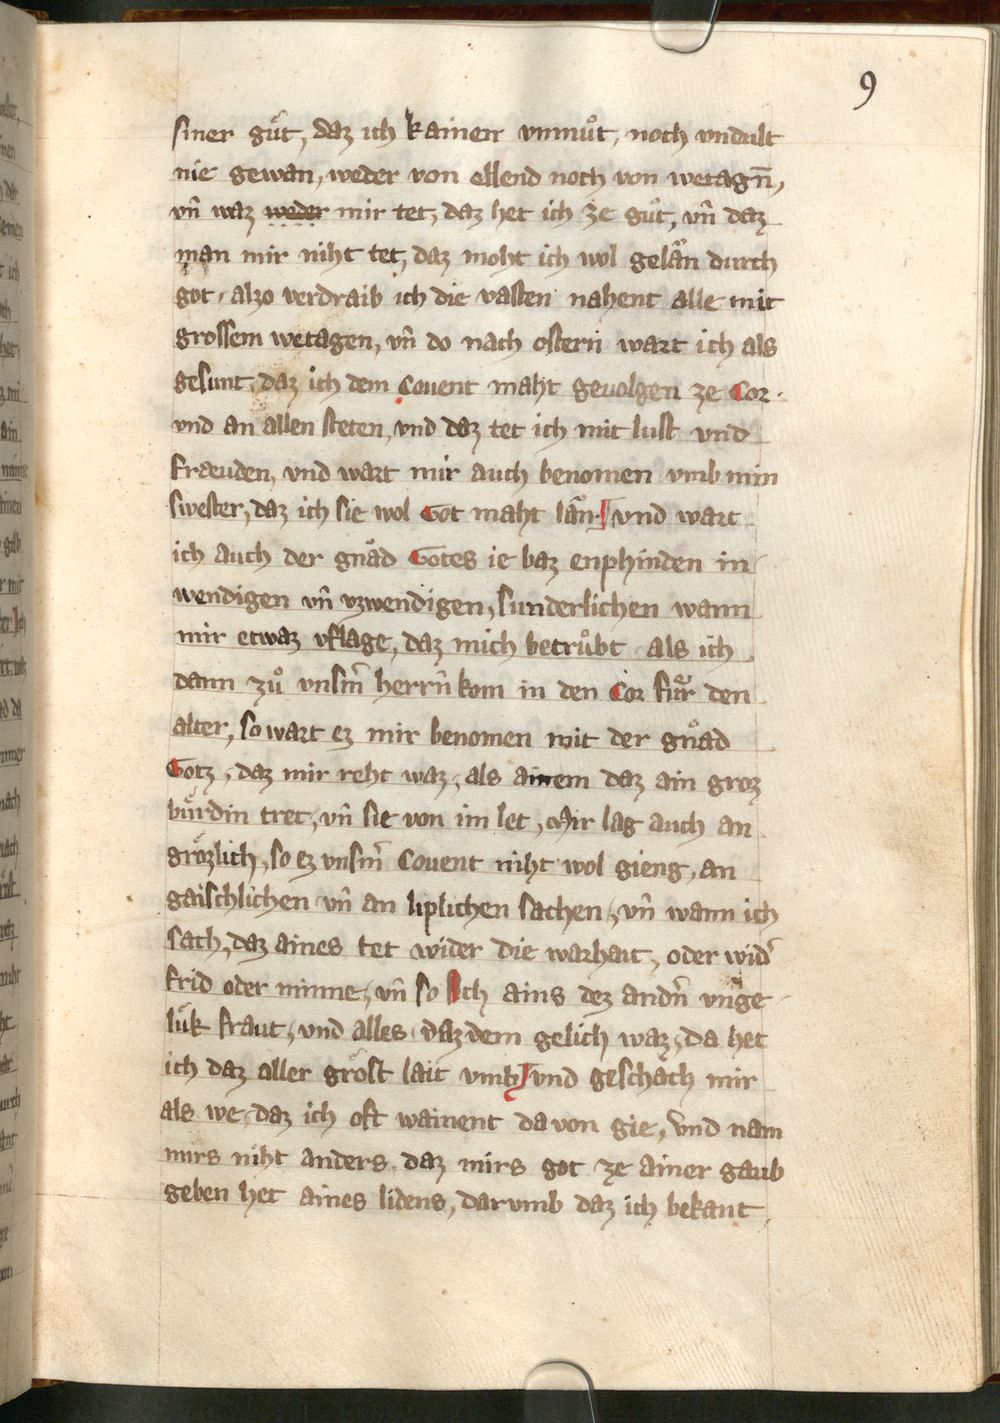 9
siner guͤt, daz ich kainen vnmuͦt, noch vndult
nie gewan, weder von ellend noch von wetagn̄,
vn̄ waz weder mir tet, daz het ich ze guͦt, vn̄ daz
man mir niht tet, daz moht ich wol gelaͮn durch
got, alzo verdraib ich die vasten nahent alle mit
grossem wetagen, vn̄ do nach ostern wart ich als
gesunt, daz ich dem Couent maht geuolgen ze Cor.
vnd an allen steten, vnd daz tet ich mit lust vnd
fraeuden, vnd wart mir auch benomen vmb min
swester, daz ich sie wol Got maht laͮn. vnd wart
ich auch der gnaͮd Gotes ie baz enphinden in
wendigen vn̄ vzwendigen, sunderlichen wann
mir etwaz vflage, daz mich betruͤbt als ich
dann zuͦ vnsm̄ herrn̄ kom in den Cor fuͤr den
alter, so wart ez mir benomen mit der gnaͮd
Gotz, daz mir reht waz, als ainem daz ain groz
buͤrdin tret, vn̄ sie von im let, Mir lag auch an
groͤzlich, so ez vnsm̄ Couent niht wol gieng, an
gaischlichen vn̄ an liplichen sachen, vn̄ wann ich
sach, daz aines tet wider die warhait, oder wid̄
frid oder minne, vn̄ so Ich ains dez andn̄ vnge
luͤk fraut, vnd alles daz dem gelich waz, da het
ich daz aller groͤst lait vmb, vnd geschach mir
als we, daz ich oft wainent da von gie, vnd nam
mirs niht anders, daz mirs got ze ainer gaub
geben het aines lidens, dar vmb daz ich bekant